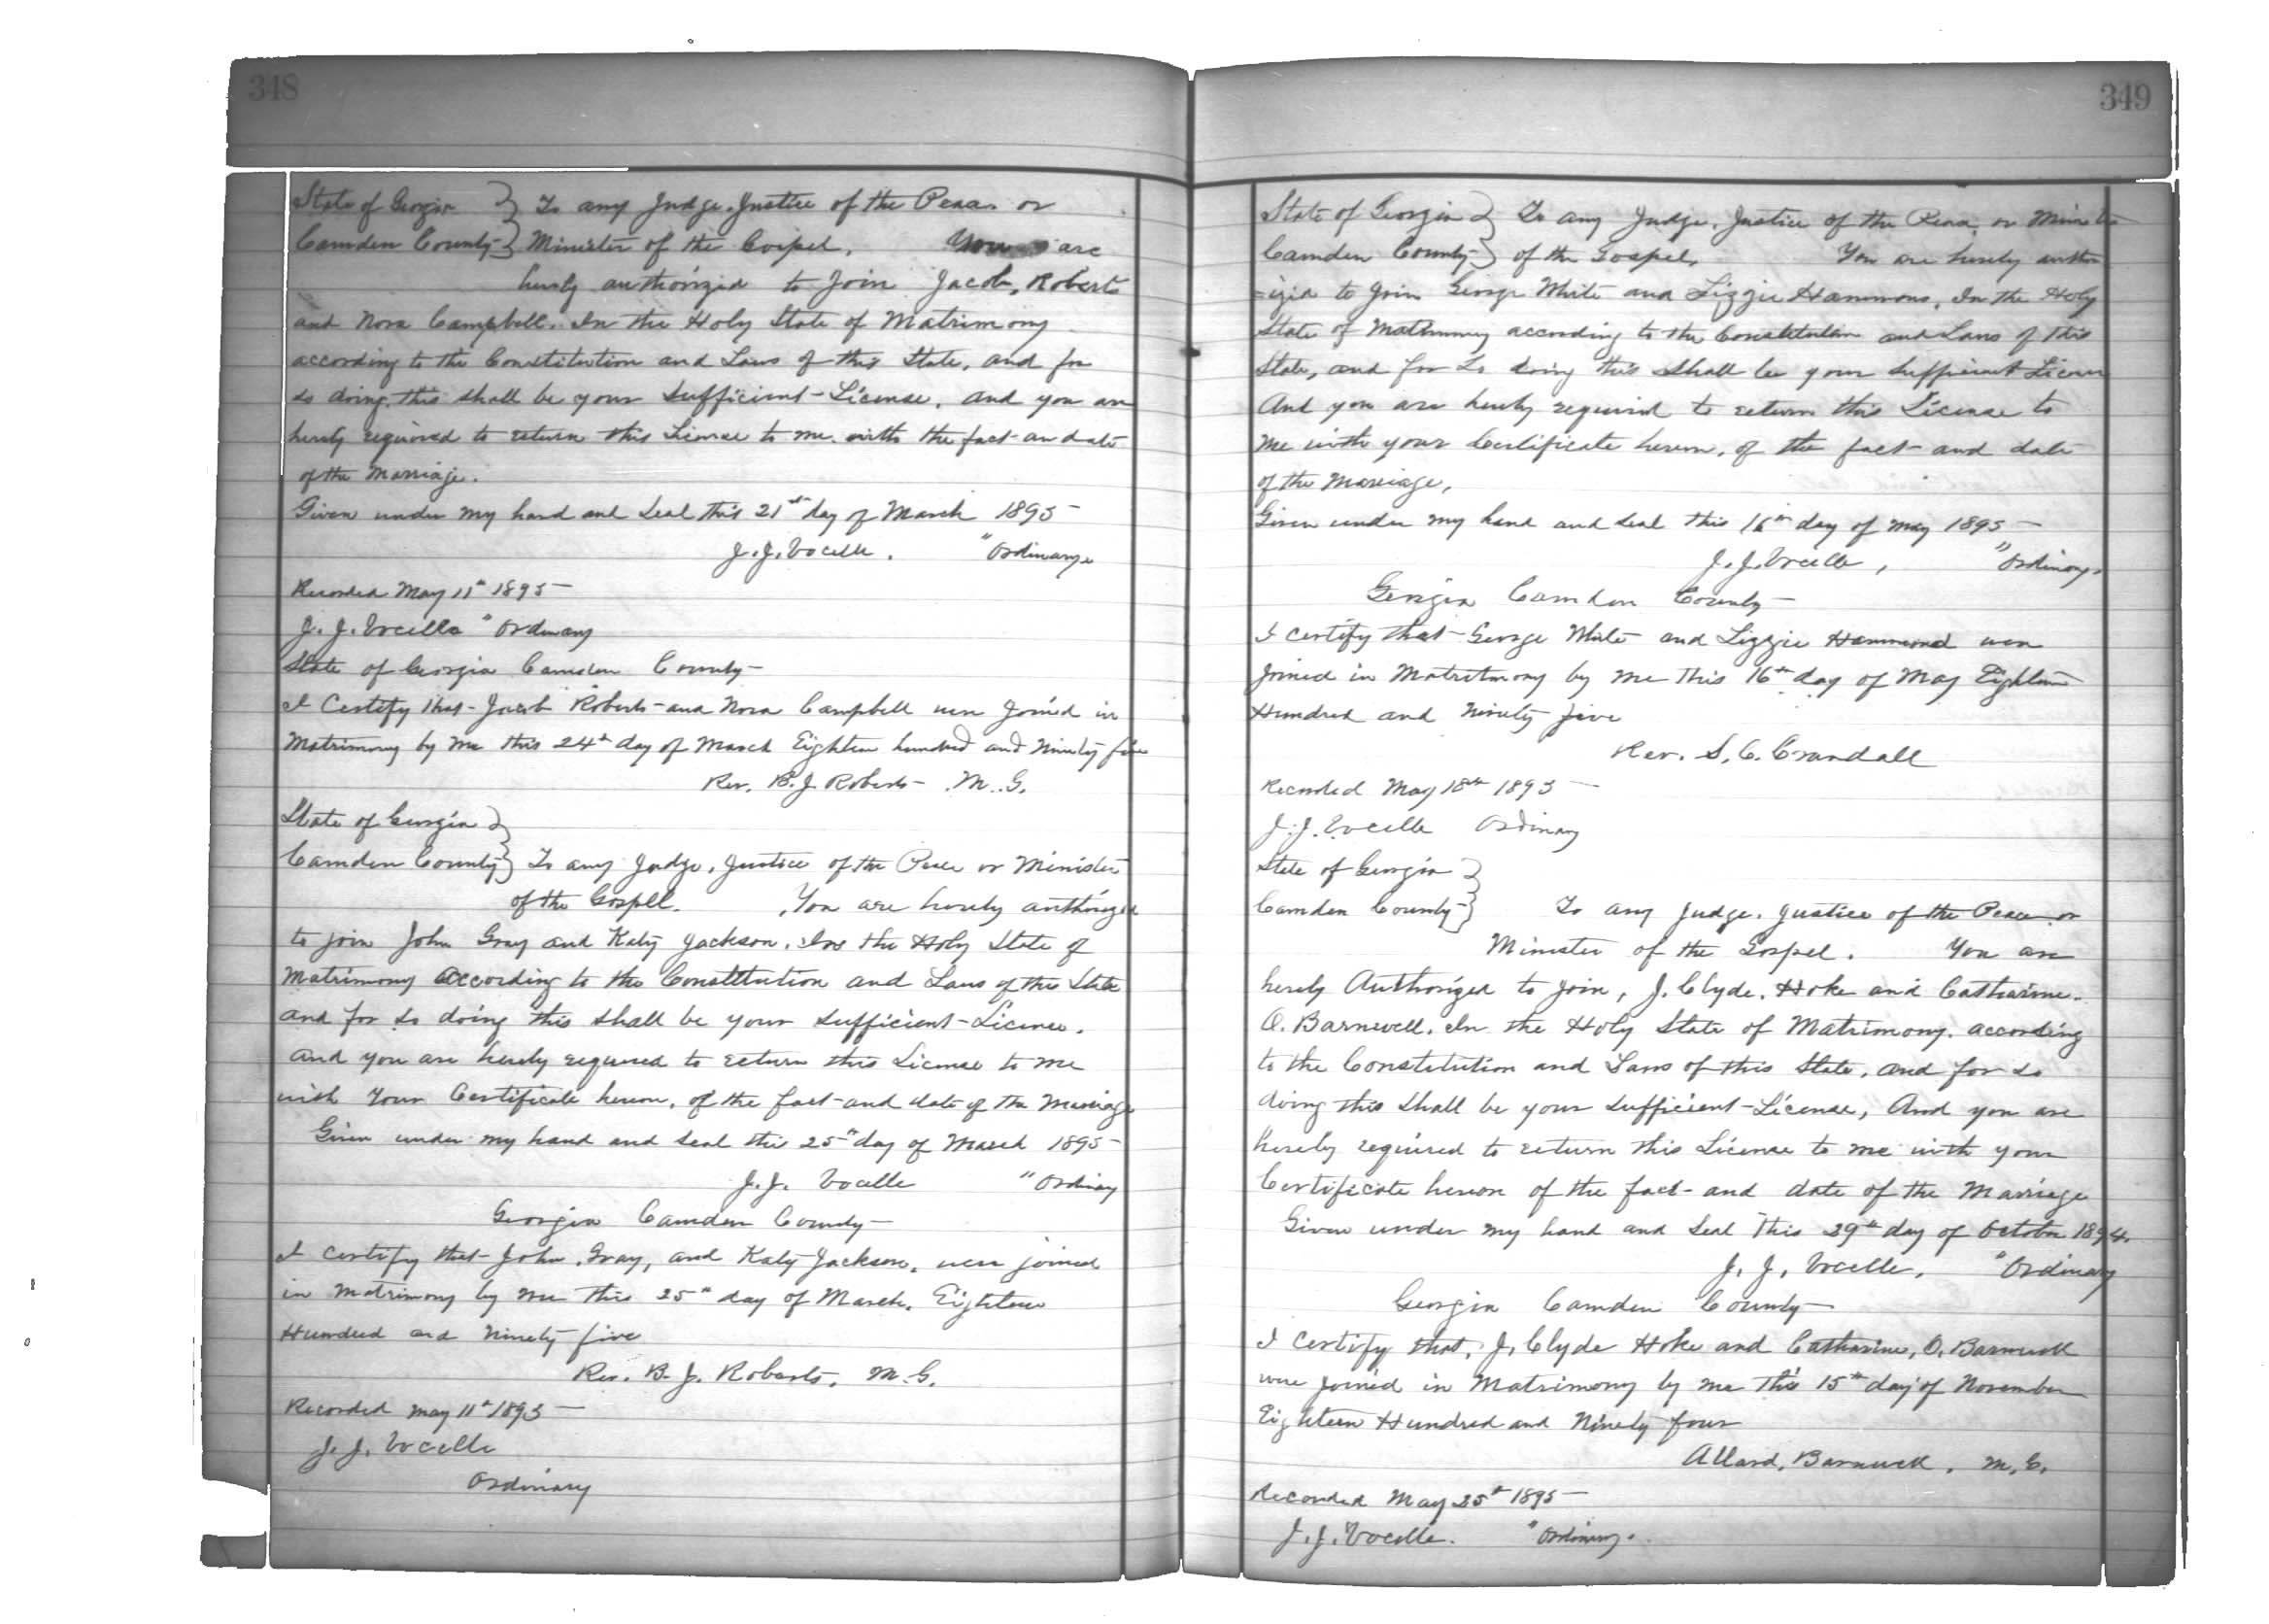 348
State of Georgia } To any Judge, Justice of the Peace or
Camden County } Minister of the Gospel. You are
hereby authorized to join Jacob, Roberts
and Nora Campbell. In the Holy State of Matrimony
according to the Constitution and Laws of this State, and for
so doing this shall be your sufficient License. and you are
hereby required to return this License to me with the fact an date
of the Marriage.
Given under my hand and Seal this 21st day of March 1895
J. J. Vocelle. "Ordinary
Recorded May 11th 1895
J. J. Vocelle "Ordinary
State of Georgia Camden County
I Certify that Jacob Roberts and Nora Campbell were joined in
Matrimony by me this 24th day of March Eighteen hundred and Ninety five
Rev. B. J. Roberts M. G.
State of Georgia }
Camden County } To any Judge, Justice of the Peace or Minister
of the Gospel. You are hereby authorized
to join John Gray and Katy Jackson. In the Holy State of
Matrimony According to the Constitution and Laws of this State
and for so doing this shall be your sufficient License.
And you are hereby required to return this License to me
with Your Certificate hereon, of the fact and date of the Marriage
Given under my hand and Seal this 25th day of March 1895
J. J. Vocelle "Ordinary
Georgia Camden County
I certify that John, Gray, and Katy Jackson, were joined
in Matrimony by me this 25th day of March, Eighteen
Hundred and Ninety five
Rev. B. J. Roberts, M. G.
Recorded May 11th 1895
J. J. Vocelle
Ordinary
349
State of Georgia } To any Judge, Justice of the Peace, or Minister
Camden County } of the Gospel. You are hereby author
=ized to join George White and Lizzie Hammons, In the Holy
State of Matrimony according to the Constitution and Laws of this
State, and for So doing this shall be your sufficient License
And you are hereby required to return this License to
me with your Certificate hereon, of the fact and date
of the Marriage,
Given under my hand and Seal this 16th day of May 1895
J. J. Vocelle, "Ordinary.
Georgia Camden County
I certify that George White and Lizzie Hammond were
joined in Matrimony by me this 16th day of May Eighteen
Hundred and Ninety five
Rev. S. C. Crandall
Recorded May 18th 1895
J. J. Vocelle Ordinary
State of Georgia }
Camden County } To any Judge, Justice of the Peace or
Minister of the Gospel. You are
hereby Authorized to join, J. Clyde. Hoke and Catharine.
O. Barnwell. In the Holy State of Matrimony. according
to the Constitution and Laws of this State, and for so
doing this shall be your sufficient License, And you are
hereby required to return this License to me with your
Certificate hereon of the fact and date of the Marriage
Given under my hand and Seal this 29th day of October 1894.
J. J. Vocelle, "Ordinary
Georgia Camden County
I certify that, J. Clyde Hoke and Catharine, O. Barnwell
were joined in Matrimony by me this 15th day of November
Eighteen Hundred and Ninety four
Allard, Barnwell, M. G.
Recorded May 25th 1895
J. J. Vocelle. "Ordinary.